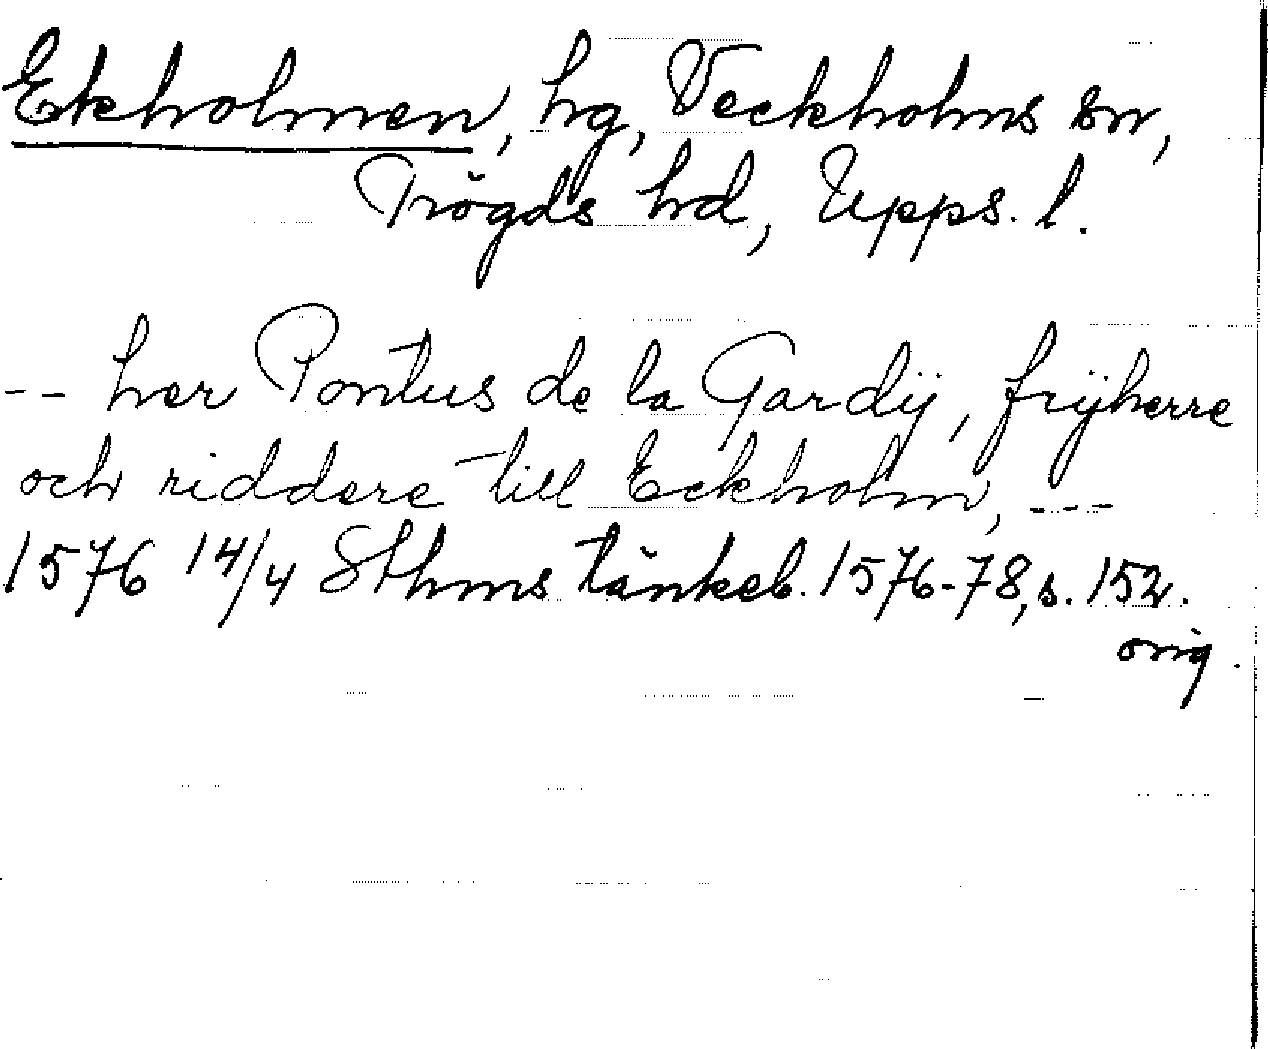 Ekholmen, hg, Veckholms sn,
Trögds hd, Upps. l.
-- her Pontus de la Gardij, frijherre
och riddere till Eckholm, ---
1576 14/4 Sthms tänkeb. 1576-78, s. 152.
orig.